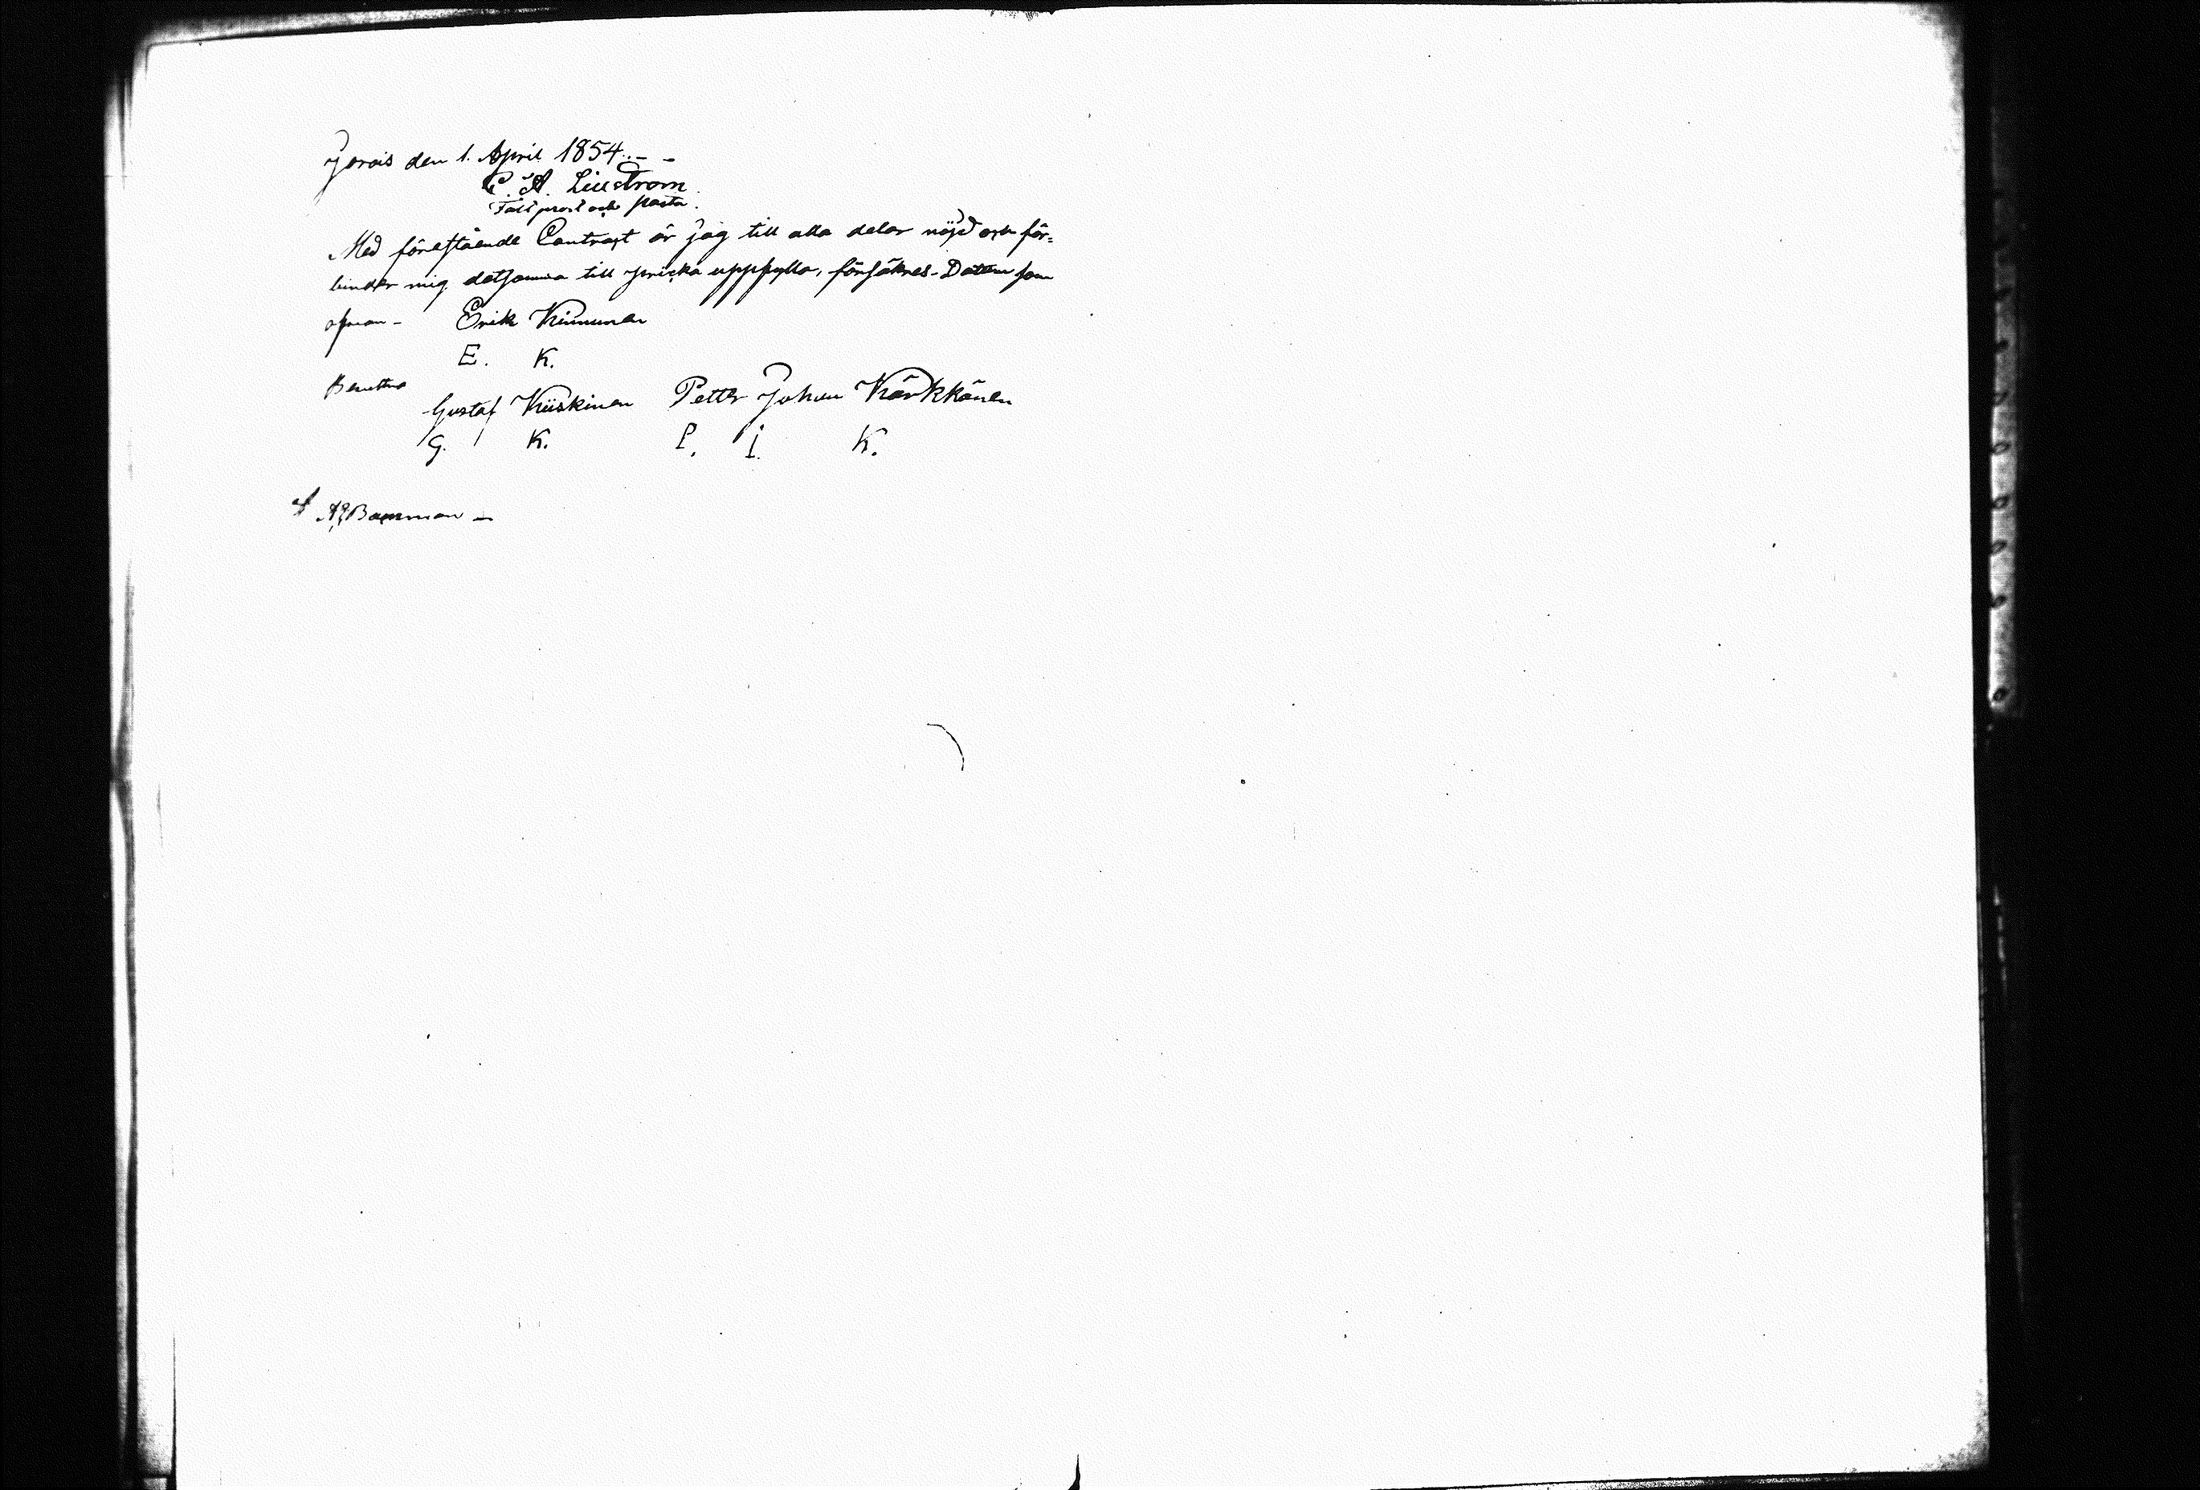 Jorois den 1. April 1854..--
C. A. Liustrom
Fält prost och pastor.
Med förestående Contract är jag till alla delar nöjd och för-
binder mig detsamma till pricka uppfylla, försäkras. Datum som
ofvan - Erik Kinnunen
E. K.
Bevittna
Gustaf Kiiskinen Petter Johan Kärkkänen
G. K. P. I. K.